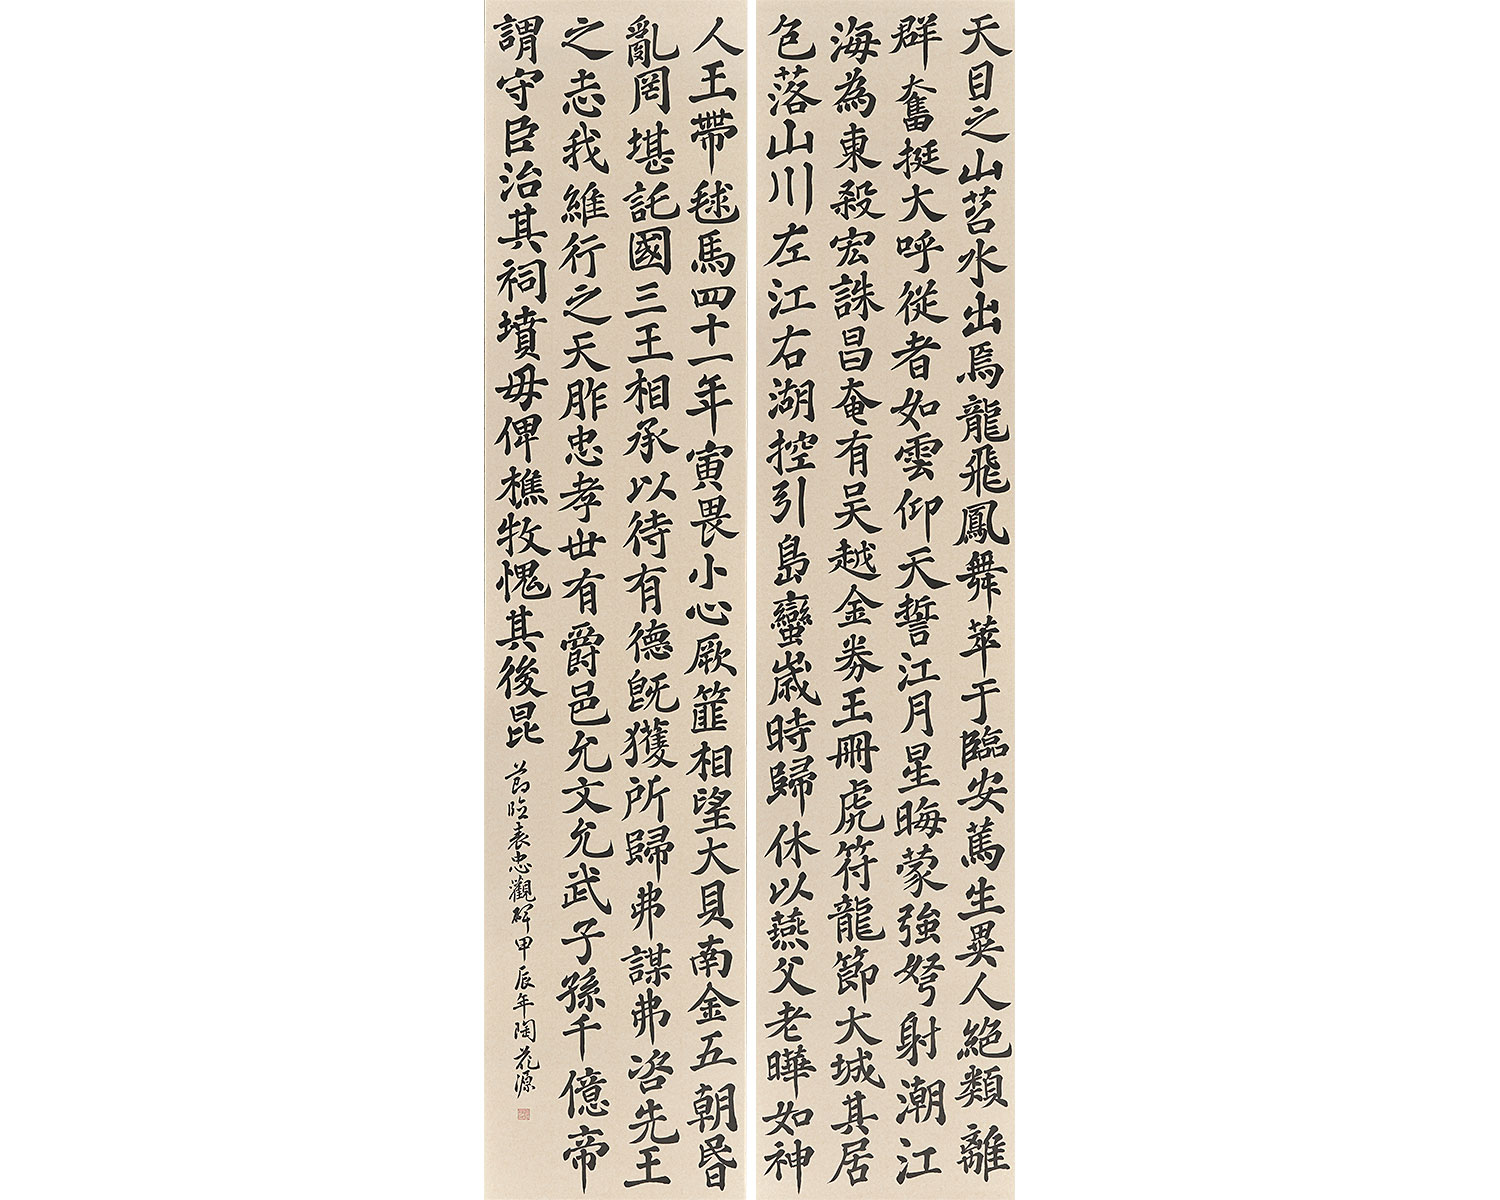 天目之山苕水出焉龍飛鳳舞萃于臨安篤生異人絕類離
群奮挺大呼從者如雲仰天誓江月星晦蒙強弩射潮江
海為東殺宏誅昌奄有吳越金券玉冊虎符龍節大城其居
包落山川左江右湖控引島蠻歲時歸休以燕父老曄如神
人玉帶毬馬四十一年寅畏小心厥篚相望大貝南金五朝昏
亂罔堪託國三王相承以待有德既獲所歸弗謀弗咨先王
之志我維行之天胙忠孝世有爵邑允文允武子孫千億帝
謂守臣治其祠墳毋俾樵牧愧其後昆
節臨表忠觀碑甲辰年陶花源